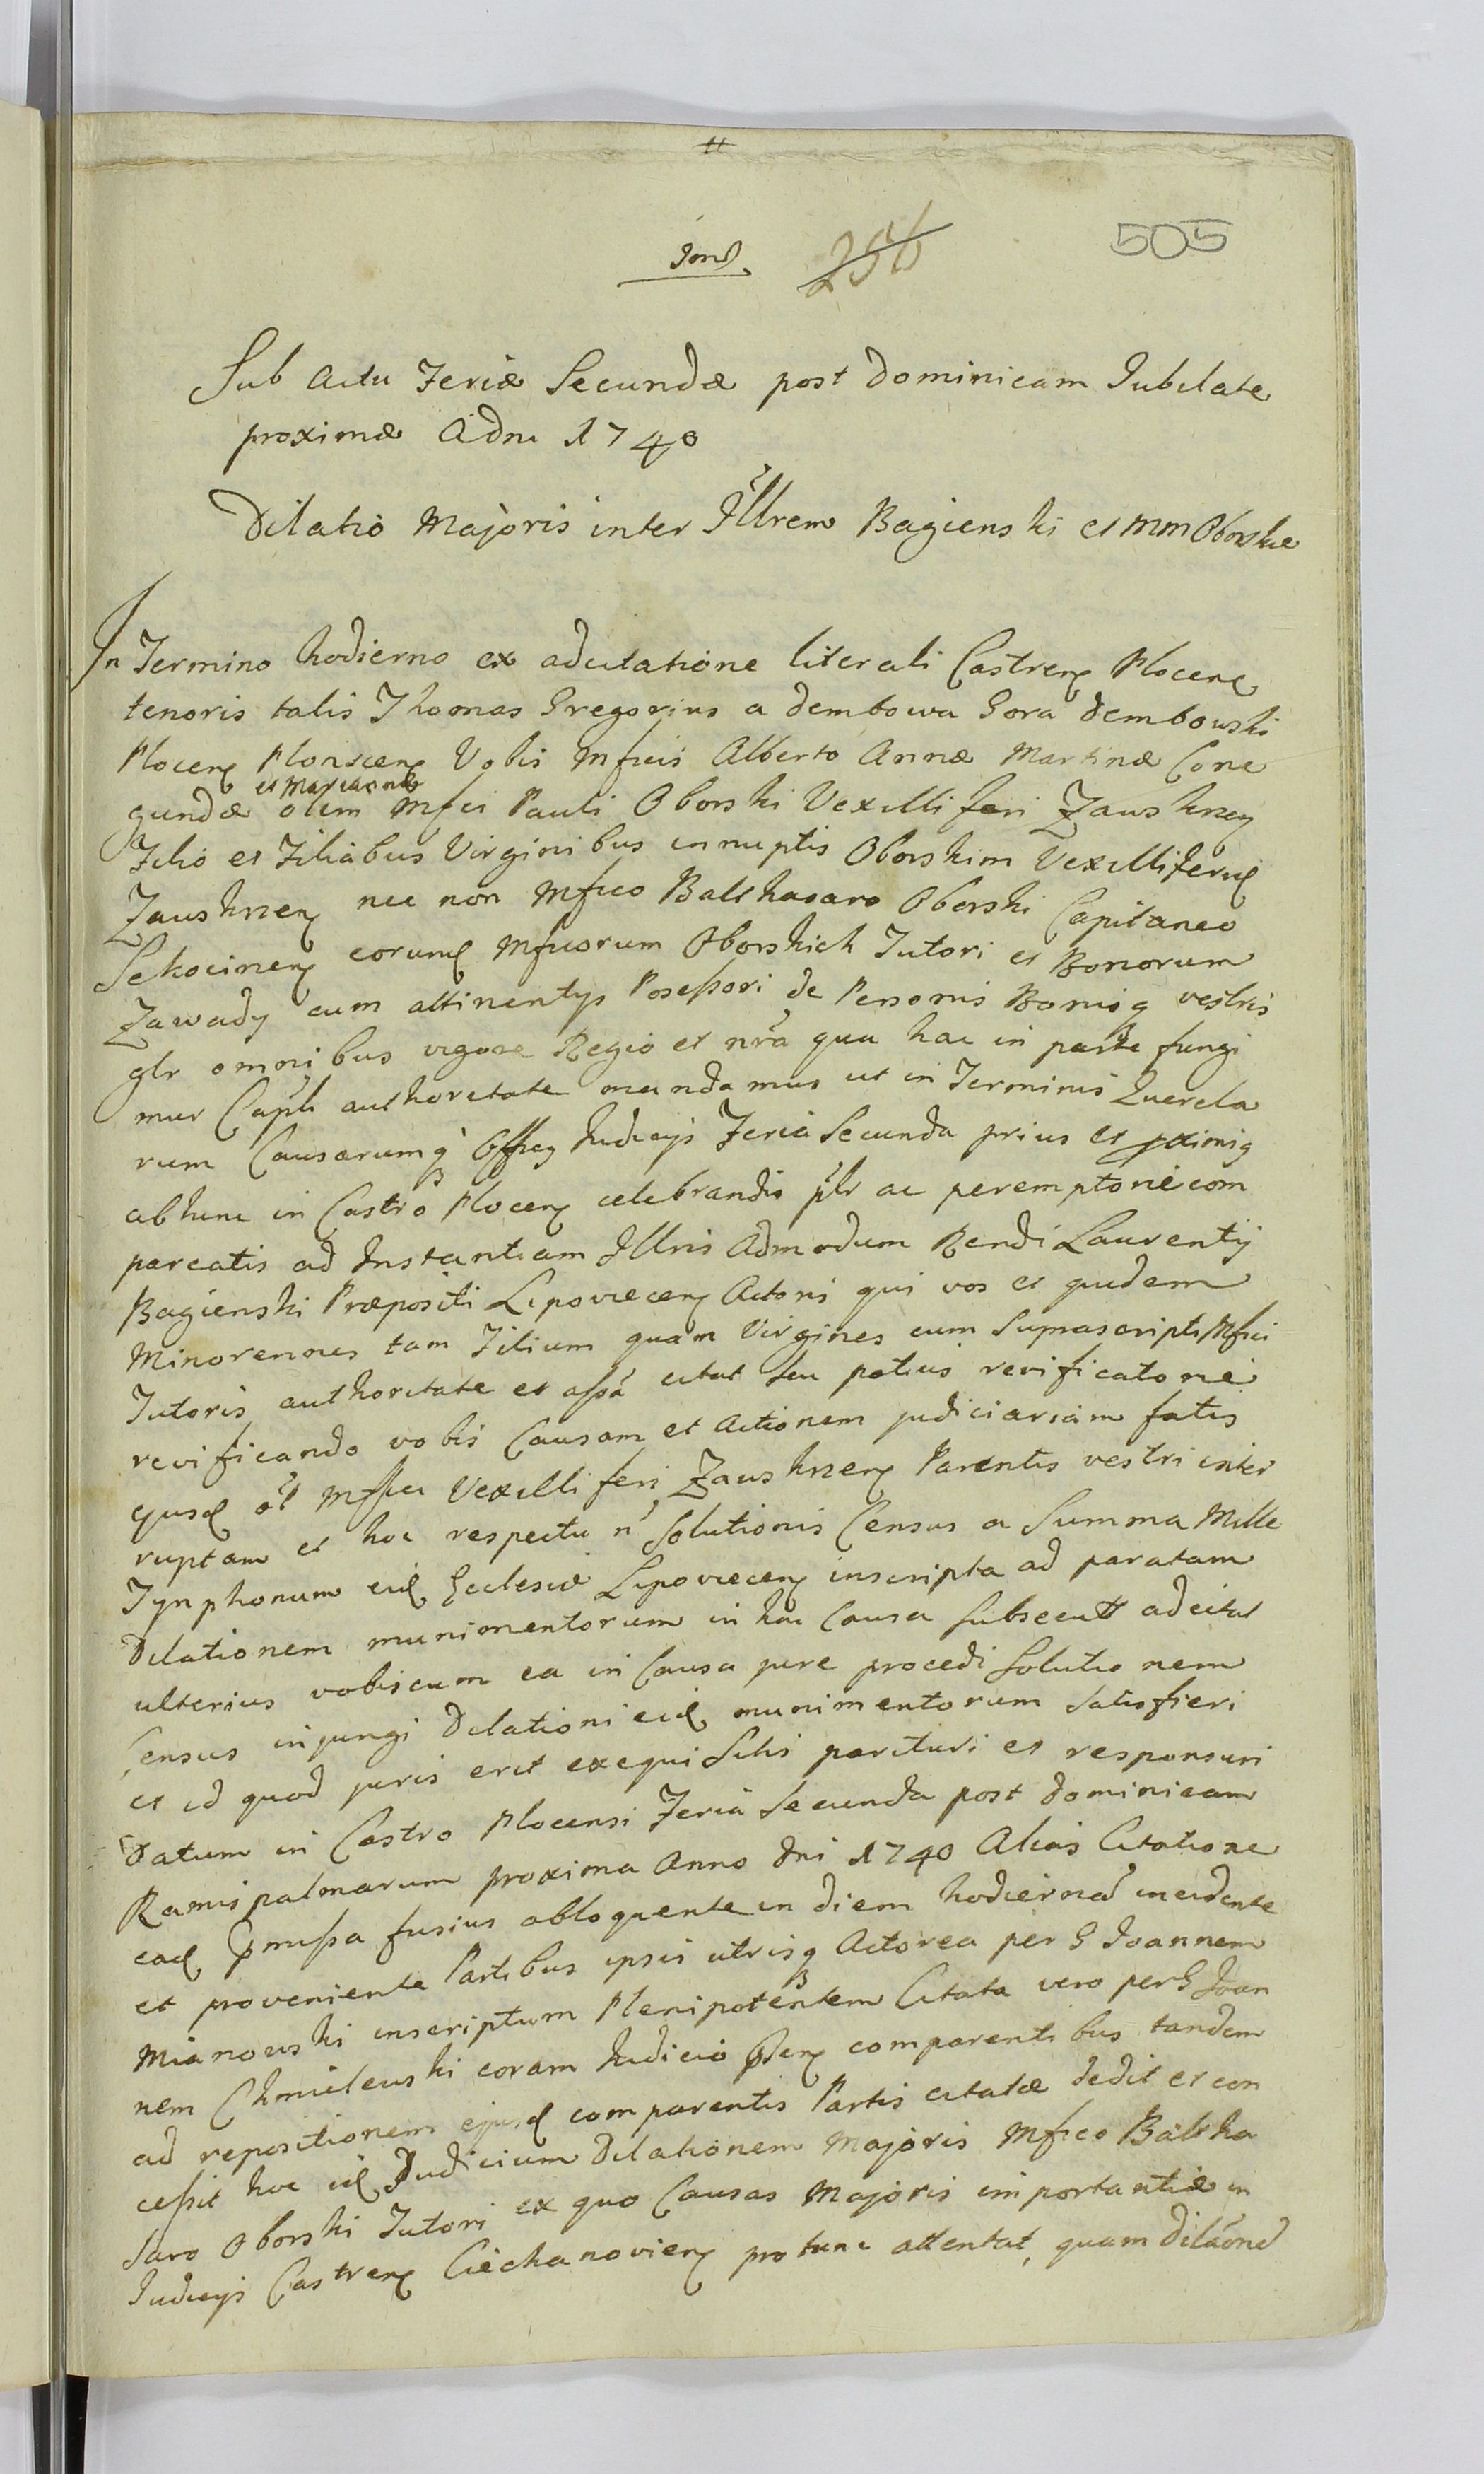 256
505
Sub Actu Feriæ Secundæ post Dominicam Jubilate
proximæ ADni 1740
Dilatio Majoris inter Jllrem Bagienski et MM Oborskie
In Termino hodierno ex adcitatione literali Castren Plocen
tenoris talis Thomas Gregorius a Dembowa Gora Dembowski
Plocen Plonscen Vobis Mfcis Alberto Annæ Martinæ Cone
et Mariannæ
gundæ olim Mfci Pauli Oborski Vexilliferi Zauskrzen
Filio et Filiabus Virginibus innuptis Oborskim Vexilliferid
Zauskrzen nec non Mfico Balthasaro Oborski Capitaneo
Sekocinen eorumd Mficorum Oborskich Tutori et Bonorum
Zawady cum attinentys Possessori de Personis Bonisq vestris
glr omnibus vigore Regio et nra qua hac in parte fungi
mur Capli authoritate mandamus ut in Terminis Querela
rum Causarumq Officy Judicys Feria Secunda prius et pximiq
abhinc in Castro Plocen celebrandis plr ac peremptorie com
pareatis ad Instantiam Jllris Admodum Rendi Laurentij
Bagienski Præpositi Lipoviecen Actoris qui vos et quidem
Minorennes tam Filium quam Virgines cum Suprascripti Mfici
Tutoris authoritate et assa citat seu potius revificatorie
revificando vobis Causam et Actionem judiciariam fatis
ejusd ol Mffici Vexilliferi Zauskrzen Parentis vestri inter
ruptam et hoc respectu n Solutionis Census a Summa Mille
Tynphonum eid Ecclesiæ Lipoviecen inscripta ad paratam
Dilationem munimentorum in hac Causa subsecutt adcitat
ulterius vobiscum ea in Causa jure procedi Solutionem
Census injungi Dilationi eid munimentorum Satisfieri
et id quod juris erit exequi Sitis parituri et responsuri
Datum in Castro Plocensi Feria Secunda post Dominicam
Ramispalmarum proxima Anno Dni 1740 Alias Citatione
ead pmissa fusius obloquente in diem hodiernad incidente
et proveniente Partibus ipsis utrisq Actorea per G Joannem
Mianowski inscriptum Plenipotentem Citata vero per G Joan
nem Chmielewski coram Judicio psen comparentibus tandem
ad repositionem ejusd comparentis Partis citatæ dedit et con
cessit hoc id Judicium Dilationem Majoris Mfico Baltha
saro Oborski Tutori ex quo Causas Majoris importantiæ in
Judicys Castren Ciechanovien pro tunc attentat, quam Dilaoned